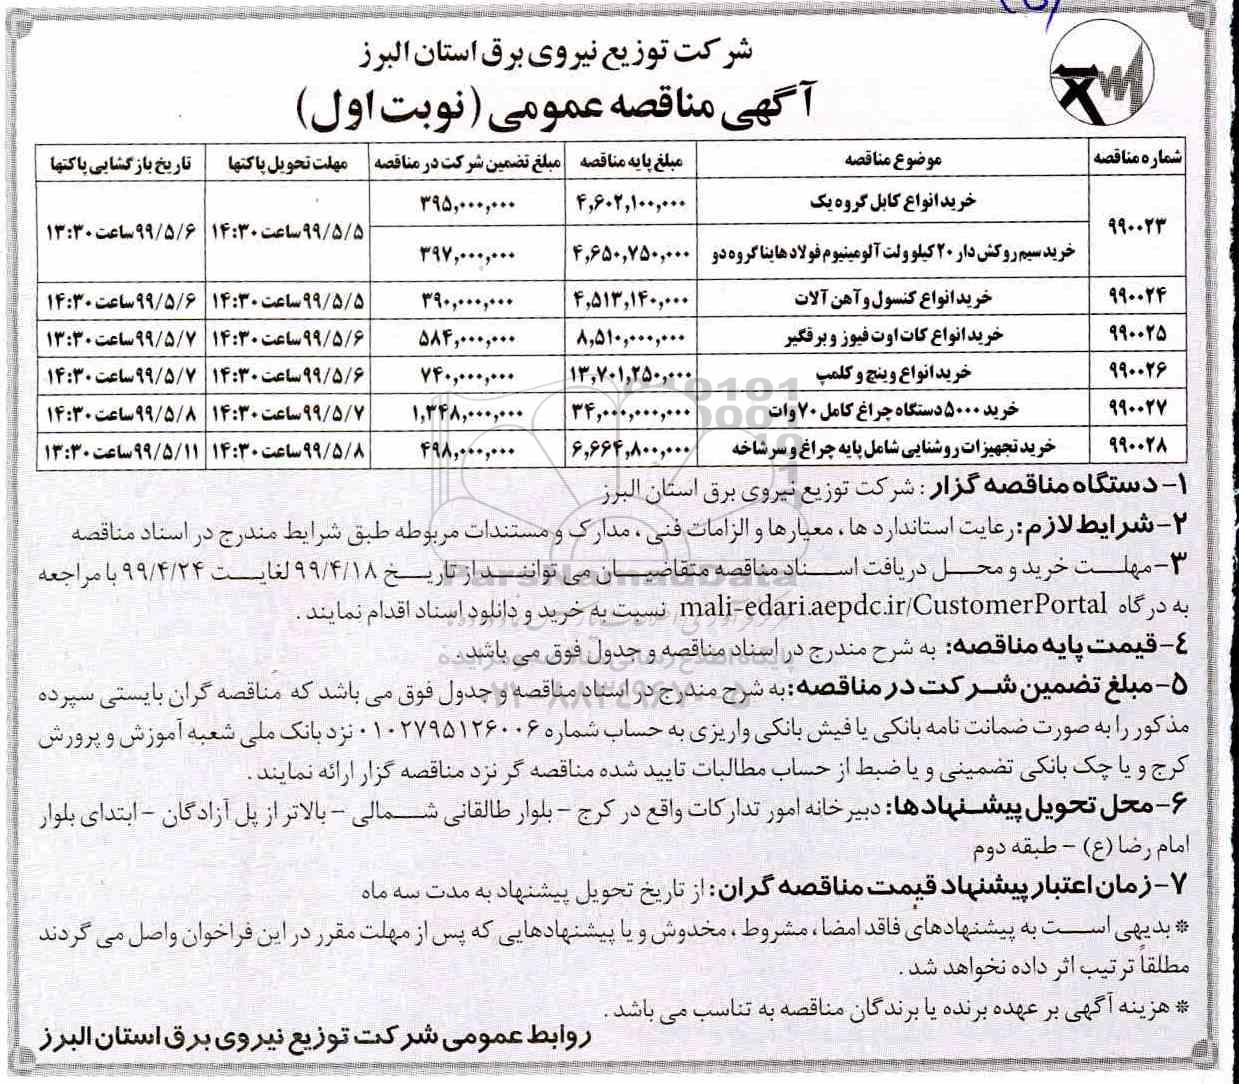 شرکت توزیع نیروی برق استان البرز
آگهی مناقصه عمومی (نوبت اول)
شماره مناقصه موضوع مناقصه مبلغ پایه مناقصه مبلغ تضمین شرکت در مناقصه مهلت تحویل پاکتها تاریخ بازگشایی پاکتها
۹۹۰۰۲۳ خرید انواع کابل گروه یک ۴,۶۰۲,۱۰۰,۰۰۰ ۳۹۵,۰۰۰,۰۰۰ ۹۹/۵/۵ ساعت ۱۴:۳۰ ۹۹/۵/۶ ساعت ۱۳:۳۰
خرید سیم روکش دار ۲۰ کیلو ولت آلومینیوم فولاد هاینا گروه دو ۴,۶۵۰,۷۵۰,۰۰۰ ۳۹۷,۰۰۰,۰۰۰
۹۹۰۰۲۴ خرید انواع کنسول و آهن آلات ۴,۵۱۳,۱۴۰,۰۰۰ ۳۹۰,۰۰۰,۰۰۰ ۹۹/۵/۵ ساعت ۱۴:۳۰ ۹۹/۵/۶ ساعت ۱۴:۳۰
۹۹۰۰۲۵ خرید انواع کات اوت فیوز و برقگیر ۸,۵۱۰,۰۰۰,۰۰۰ ۵۸۴,۰۰۰,۰۰۰ ۹۹/۵/۶ ساعت ۱۴:۳۰ ۹۹/۵/۷ ساعت ۱۳:۳۰
۹۹۰۰۲۶ خرید انواع وینچ و کلمپ ۱۳,۷۰۱,۲۵۰,۰۰۰ ۷۴۰,۰۰۰,۰۰۰ ۹۹/۵/۶ ساعت ۱۴:۳۰ ۹۹/۵/۷ ساعت ۱۴:۳۰
۹۹۰۰۲۷ خرید ۵۰۰۰ دستگاه چراغ کامل ۷۰ وات ۳۴,۰۰۰,۰۰۰,۰۰۰ ۱,۳۴۸,۰۰۰,۰۰۰ ۹۹/۵/۷ ساعت ۱۴:۳۰ ۹۹/۵/۸ ساعت ۱۴:۳۰
۹۹۰۰۲۸ خرید تجهیزات روشنایی شامل پایه چراغ و سرشاخه ۶,۶۶۴,۸۰۰,۰۰۰ ۴۹۸,۰۰۰,۰۰۰ ۹۹/۵/۸ ساعت ۱۴:۳۰ ۹۹/۵/۱۱ ساعت ۱۳:۳۰
۱- دستگاه مناقصه گزار : شرکت توزیع نیروی برق استان البرز
۲- شرایط لازم: رعایت استاندارد ها ، معیارها و الزامات فنی ، مدارک و مستندات مربوطه طبق شرایط مندرج در اسناد مناقصه
۳- مهلت خرید و محل دریافت اسناد مناقصه متقاضیان می توانند از تاریخ ۹۹/۴/۱۸ لغایت ۹۹/۴/۲۴ با مراجعه
به درگاه mali-edari.aepdc.ir/CustomerPortal نسبت به خرید و دانلود اسناد اقدام نمایند .
۴- قیمت پایه مناقصه: به شرح مندرج در اسناد مناقصه و جدول فوق می باشد .
۵- مبلغ تضمین شرکت در مناقصه: به شرح مندرج در اسناد مناقصه و جدول فوق می باشد که مناقصه گران بایستی سپرده
مذکور را به صورت ضمانت نامه بانکی یا فیش بانکی واریزی به حساب شماره ۰۱۰۲۷۹۵۱۲۶۰۰۶ نزد بانک ملی شعبه آموزش و پرورش
کرج و یا چک بانکی تضمینی و یا ضبط از حساب مطالبات تایید شده مناقصه گر نزد مناقصه گزار ارائه نمایند .
۶- محل تحویل پیشنهادها: دبیرخانه امور تدارکات واقع در کرج - بلوار طالقانی شمالی - بالاتر از پل آزادگان - ابتدای بلوار
امام رضا (ع) - طبقه دوم
۷- زمان اعتبار پیشنهاد قیمت مناقصه گران: از تاریخ تحویل پیشنهاد به مدت سه ماه
* بدیهی است به پیشنهادهای فاقد امضا ، مشروط ، مخدوش و یا پیشنهادهایی که پس از مهلت مقرر در این فراخوان واصل می گردند
مطلقاً ترتیب اثر داده نخواهد شد .
* هزینه آگهی بر عهده برنده یا برندگان مناقصه به تناسب می باشد .
روابط عمومی شرکت توزیع نیروی برق استان البرز